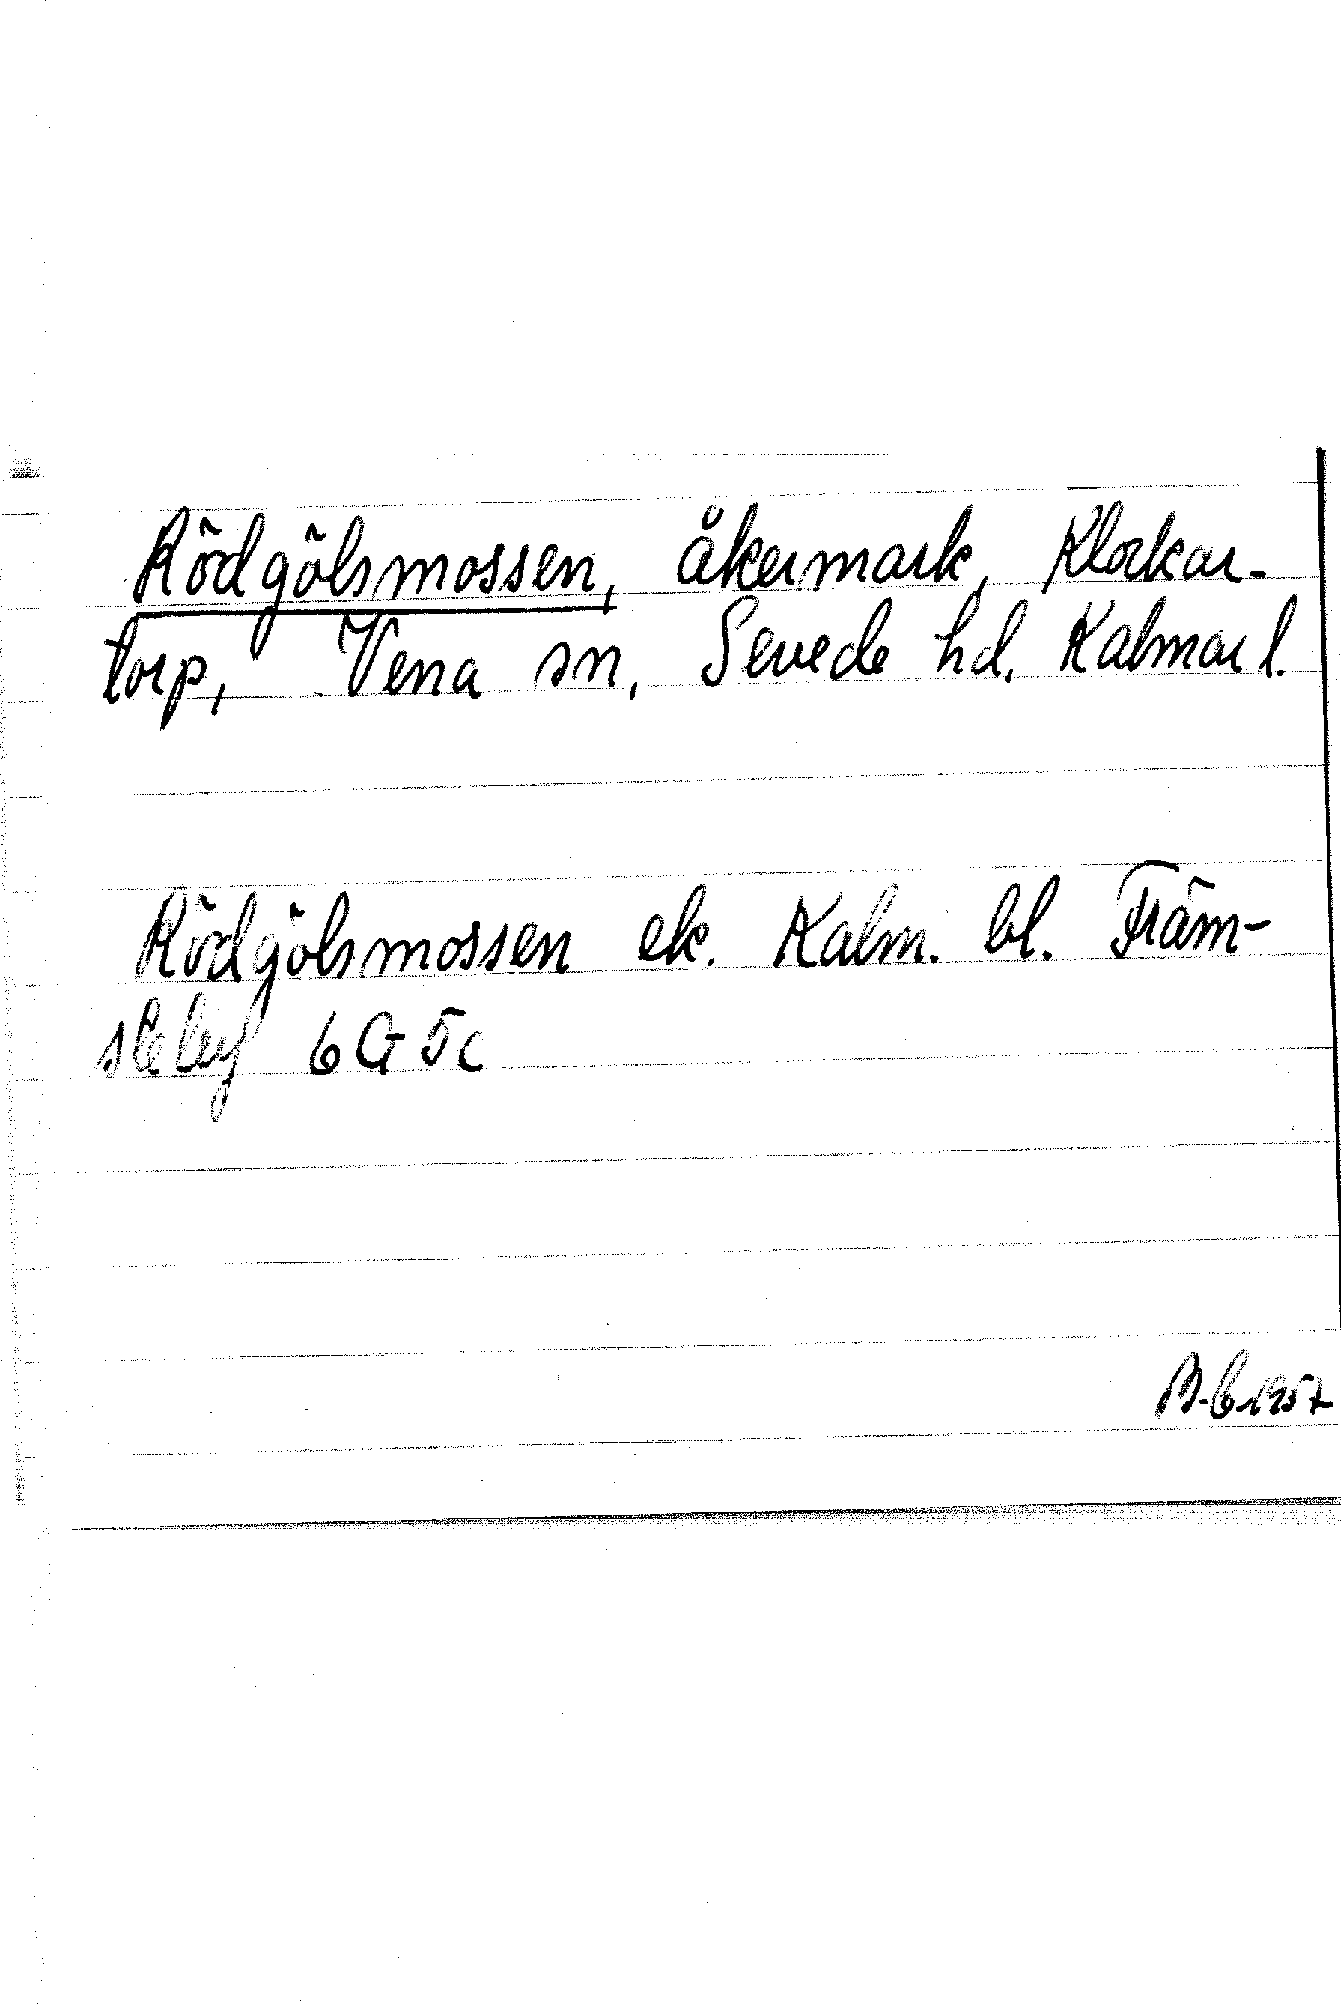 Rödgölsmossen, åkermark, Klockar-
torp, Vena sn, Sevede hd, Kalmar l.
Rödgölsmossen ek. Kalm. bl. Främ-
steby 6G5c
B-G 1957